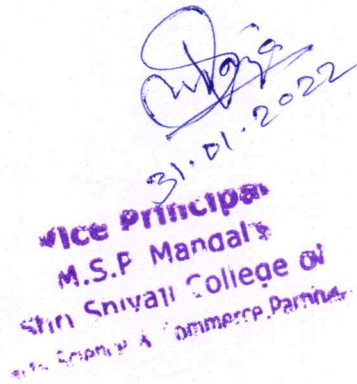 31.01.2022
Vice Principal
M.S.P Mandal's
Shri Shivaji College of
Arts Science & Commerce, Parbhani